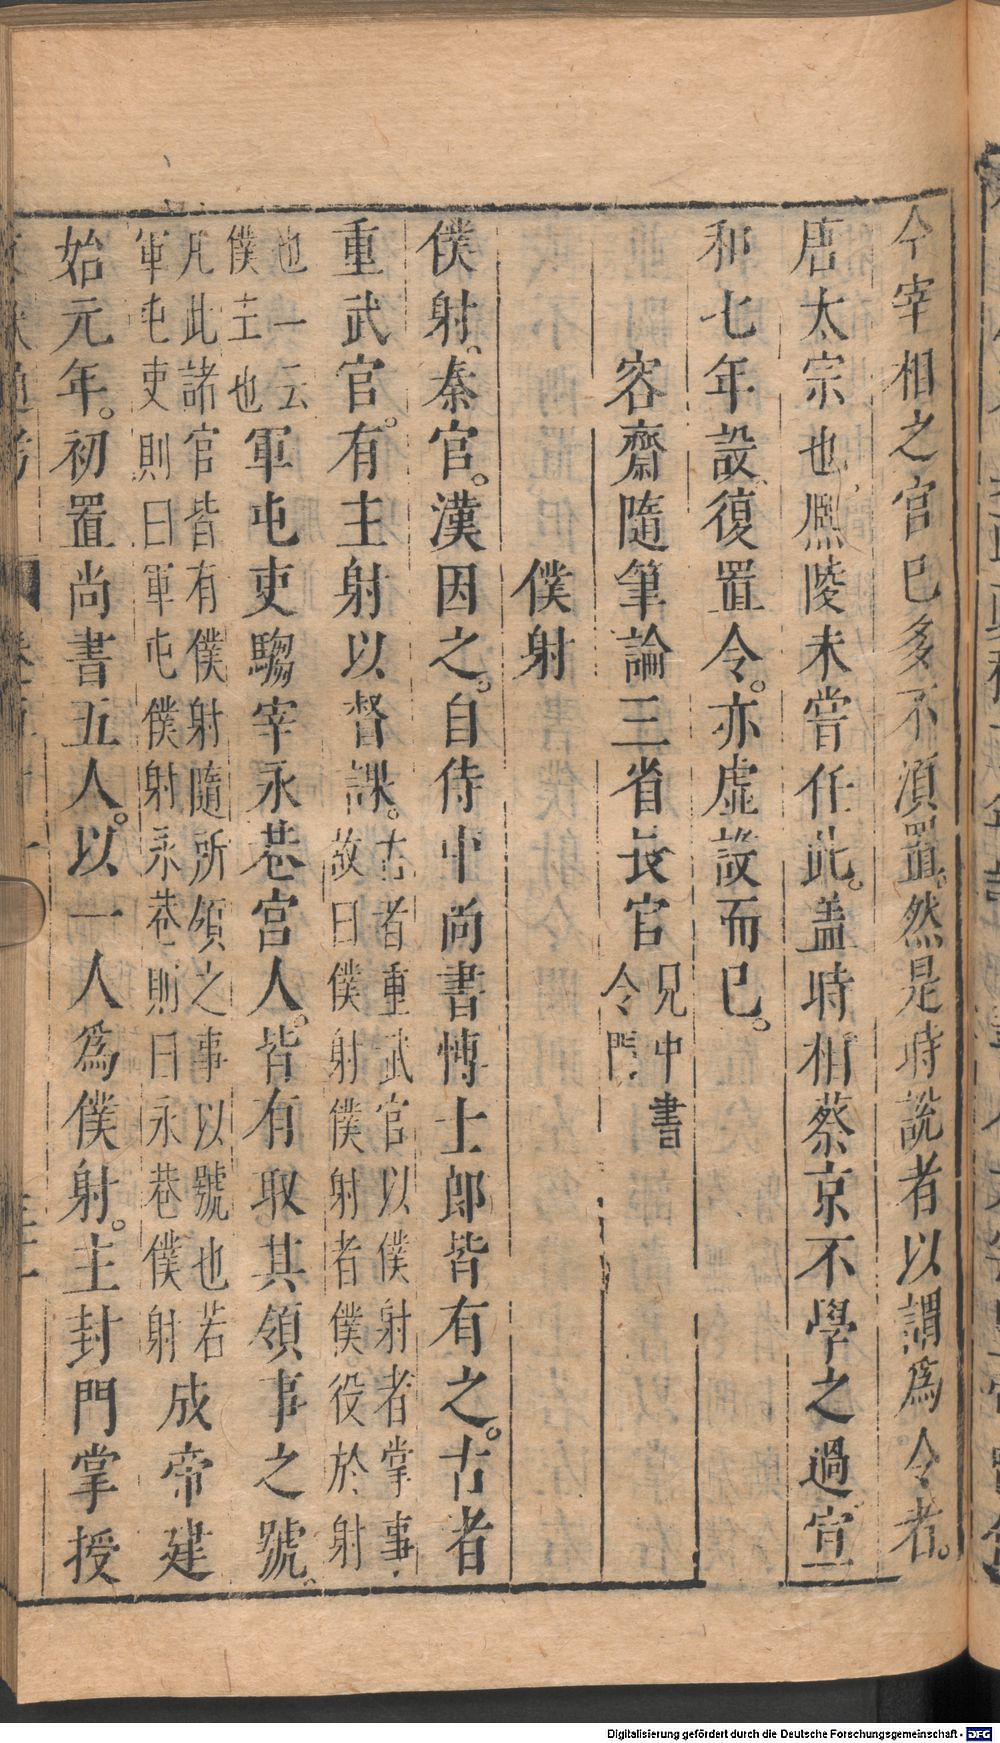 今宰相之官已多不須置。然是時說者以謂為令者。
唐太宗也熈陵未嘗任此。盖時相蔡京不學之過宣
和七年設復置令。亦虛設而已。
容齋隨筆論三省長官見中書令門
僕射
僕射。秦官。漢因之。自侍中尚書博士郎皆有之。古者
重武官。有主射以督課。古者重武官以僕射者掌事故曰僕射僕射者僕。役於射
也一云僕主也軍屯吏騶宰永巷宮人。皆有取其領事之號。
凡此諸官皆有僕射隨所領之事以號也若軍屯吏則曰軍屯僕射永巷則曰永巷僕射成帝建
始元年。初置尚書五人。以一人為僕射。主封門掌授
Digitalisierung gefördert durch die Deutsche Forschungsgemeinschaft - DFG